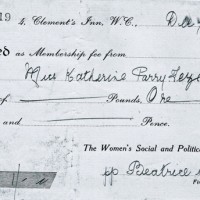 19 4, Clement's Inn, W.C.,
ed as Membership fee from
Miss Katherine Parry
of Pounds, One
and Pence.
The Women's Social and Politic
pp. Beatrice